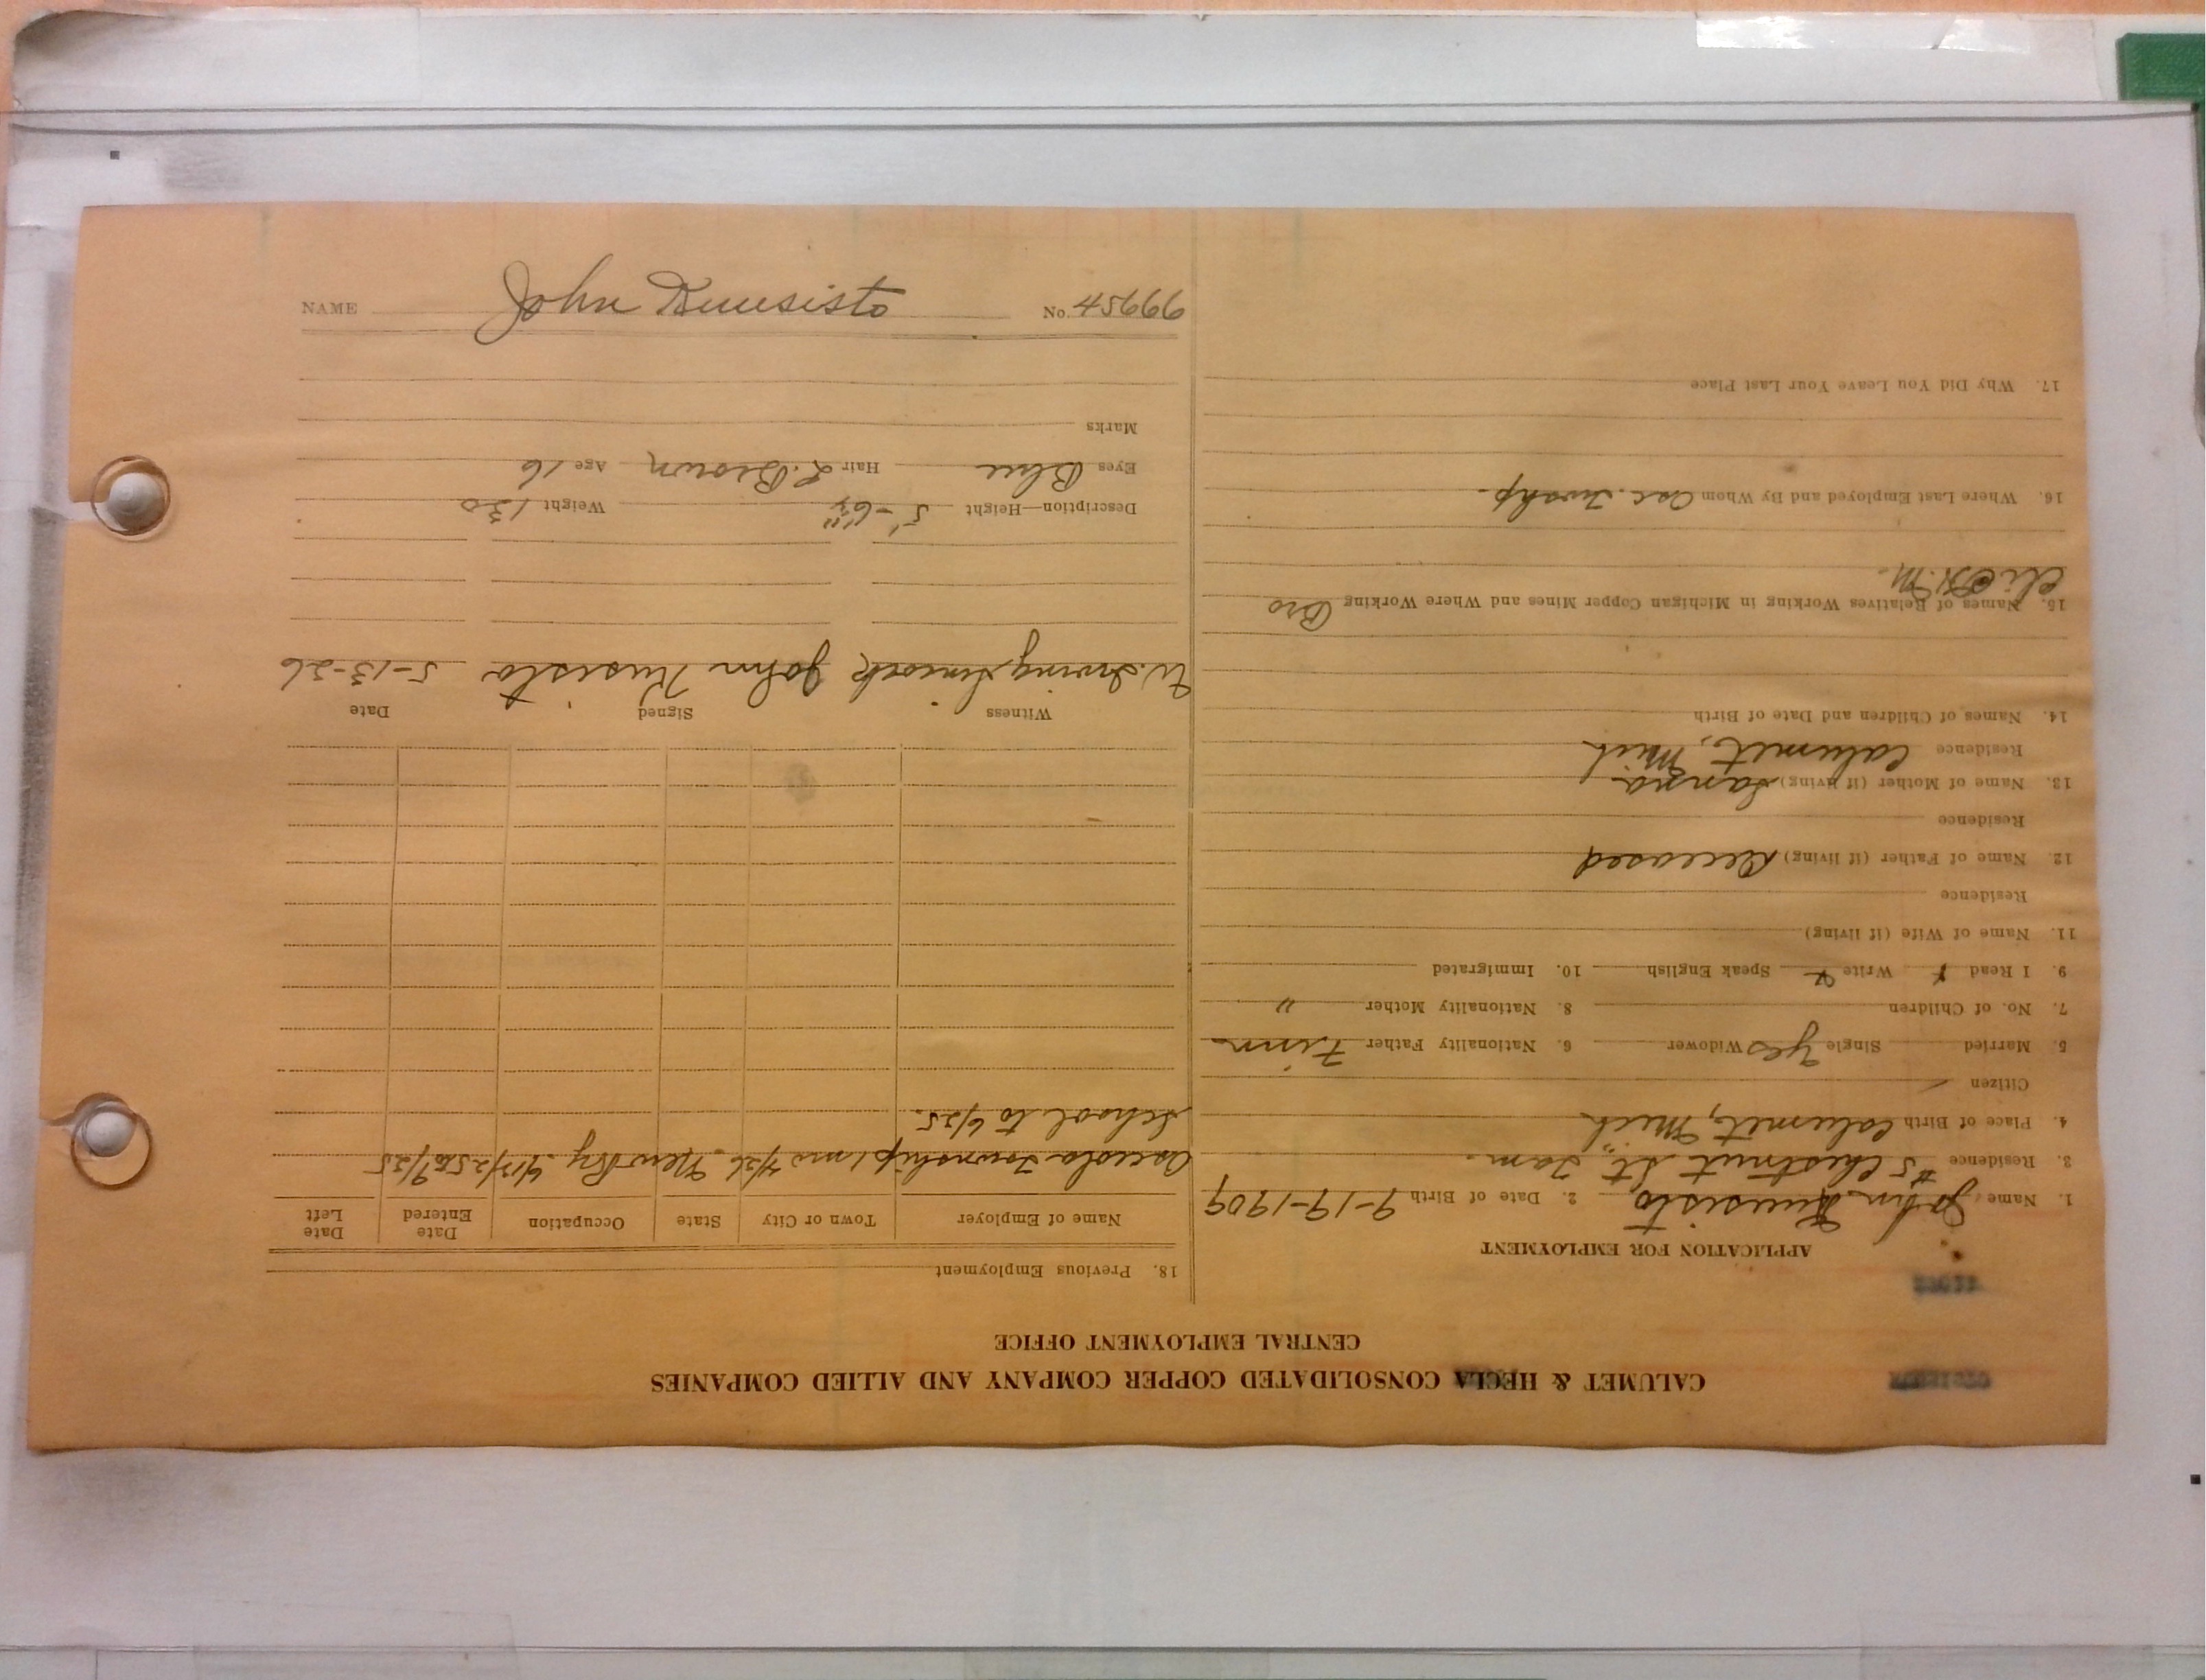 CALUMET & HECLA CONSOLIDATED COPPER COMPANY AND ALLIED COMPANIES
CENTRAL EMPLOYMENT OFFICE
APPLICATION FOR EMPLOYMENT
1. Name John Kuusisto 2. Date of Birth 9-19-1909
3. Residence #5 Chestnut St., Tam.
4. Place of Birth Calumet, Mich
Citizen
5. Married Single Yes Widower 6. Nationality Father Finn
7. No. of Children 8. Nationality Mother "
9. I Read Write Speak English 10. Immigrated
11. Name of Wife (if living)
Residence
12. Name of Father (if living) Deceased
Residence
13. Name of Mother (if living) Sanna
Residence Calumet, Mich
14. Names of Children and Date of Birth
15. Names of Relatives Working in Michigan Copper Mines and Where Working Bro
16. Where Last Employed and By Whom Osc. Twshp.
17. Why Did You Leave Your Last Place
18. Previous Employment
Name of Employer Town or City State Occupation Date Entered Date Left
Osceola Township 1 mo 4/26 6/17/25 to 9/25
School to 6/25.
Witness Signed Date
W. Irving John Kusisto 5-13-26
Description—Height 5'-6½" Weight 130
Eyes Blue Hair L. Brown Age 16
Marks
NAME John Kuusisto No. 45666